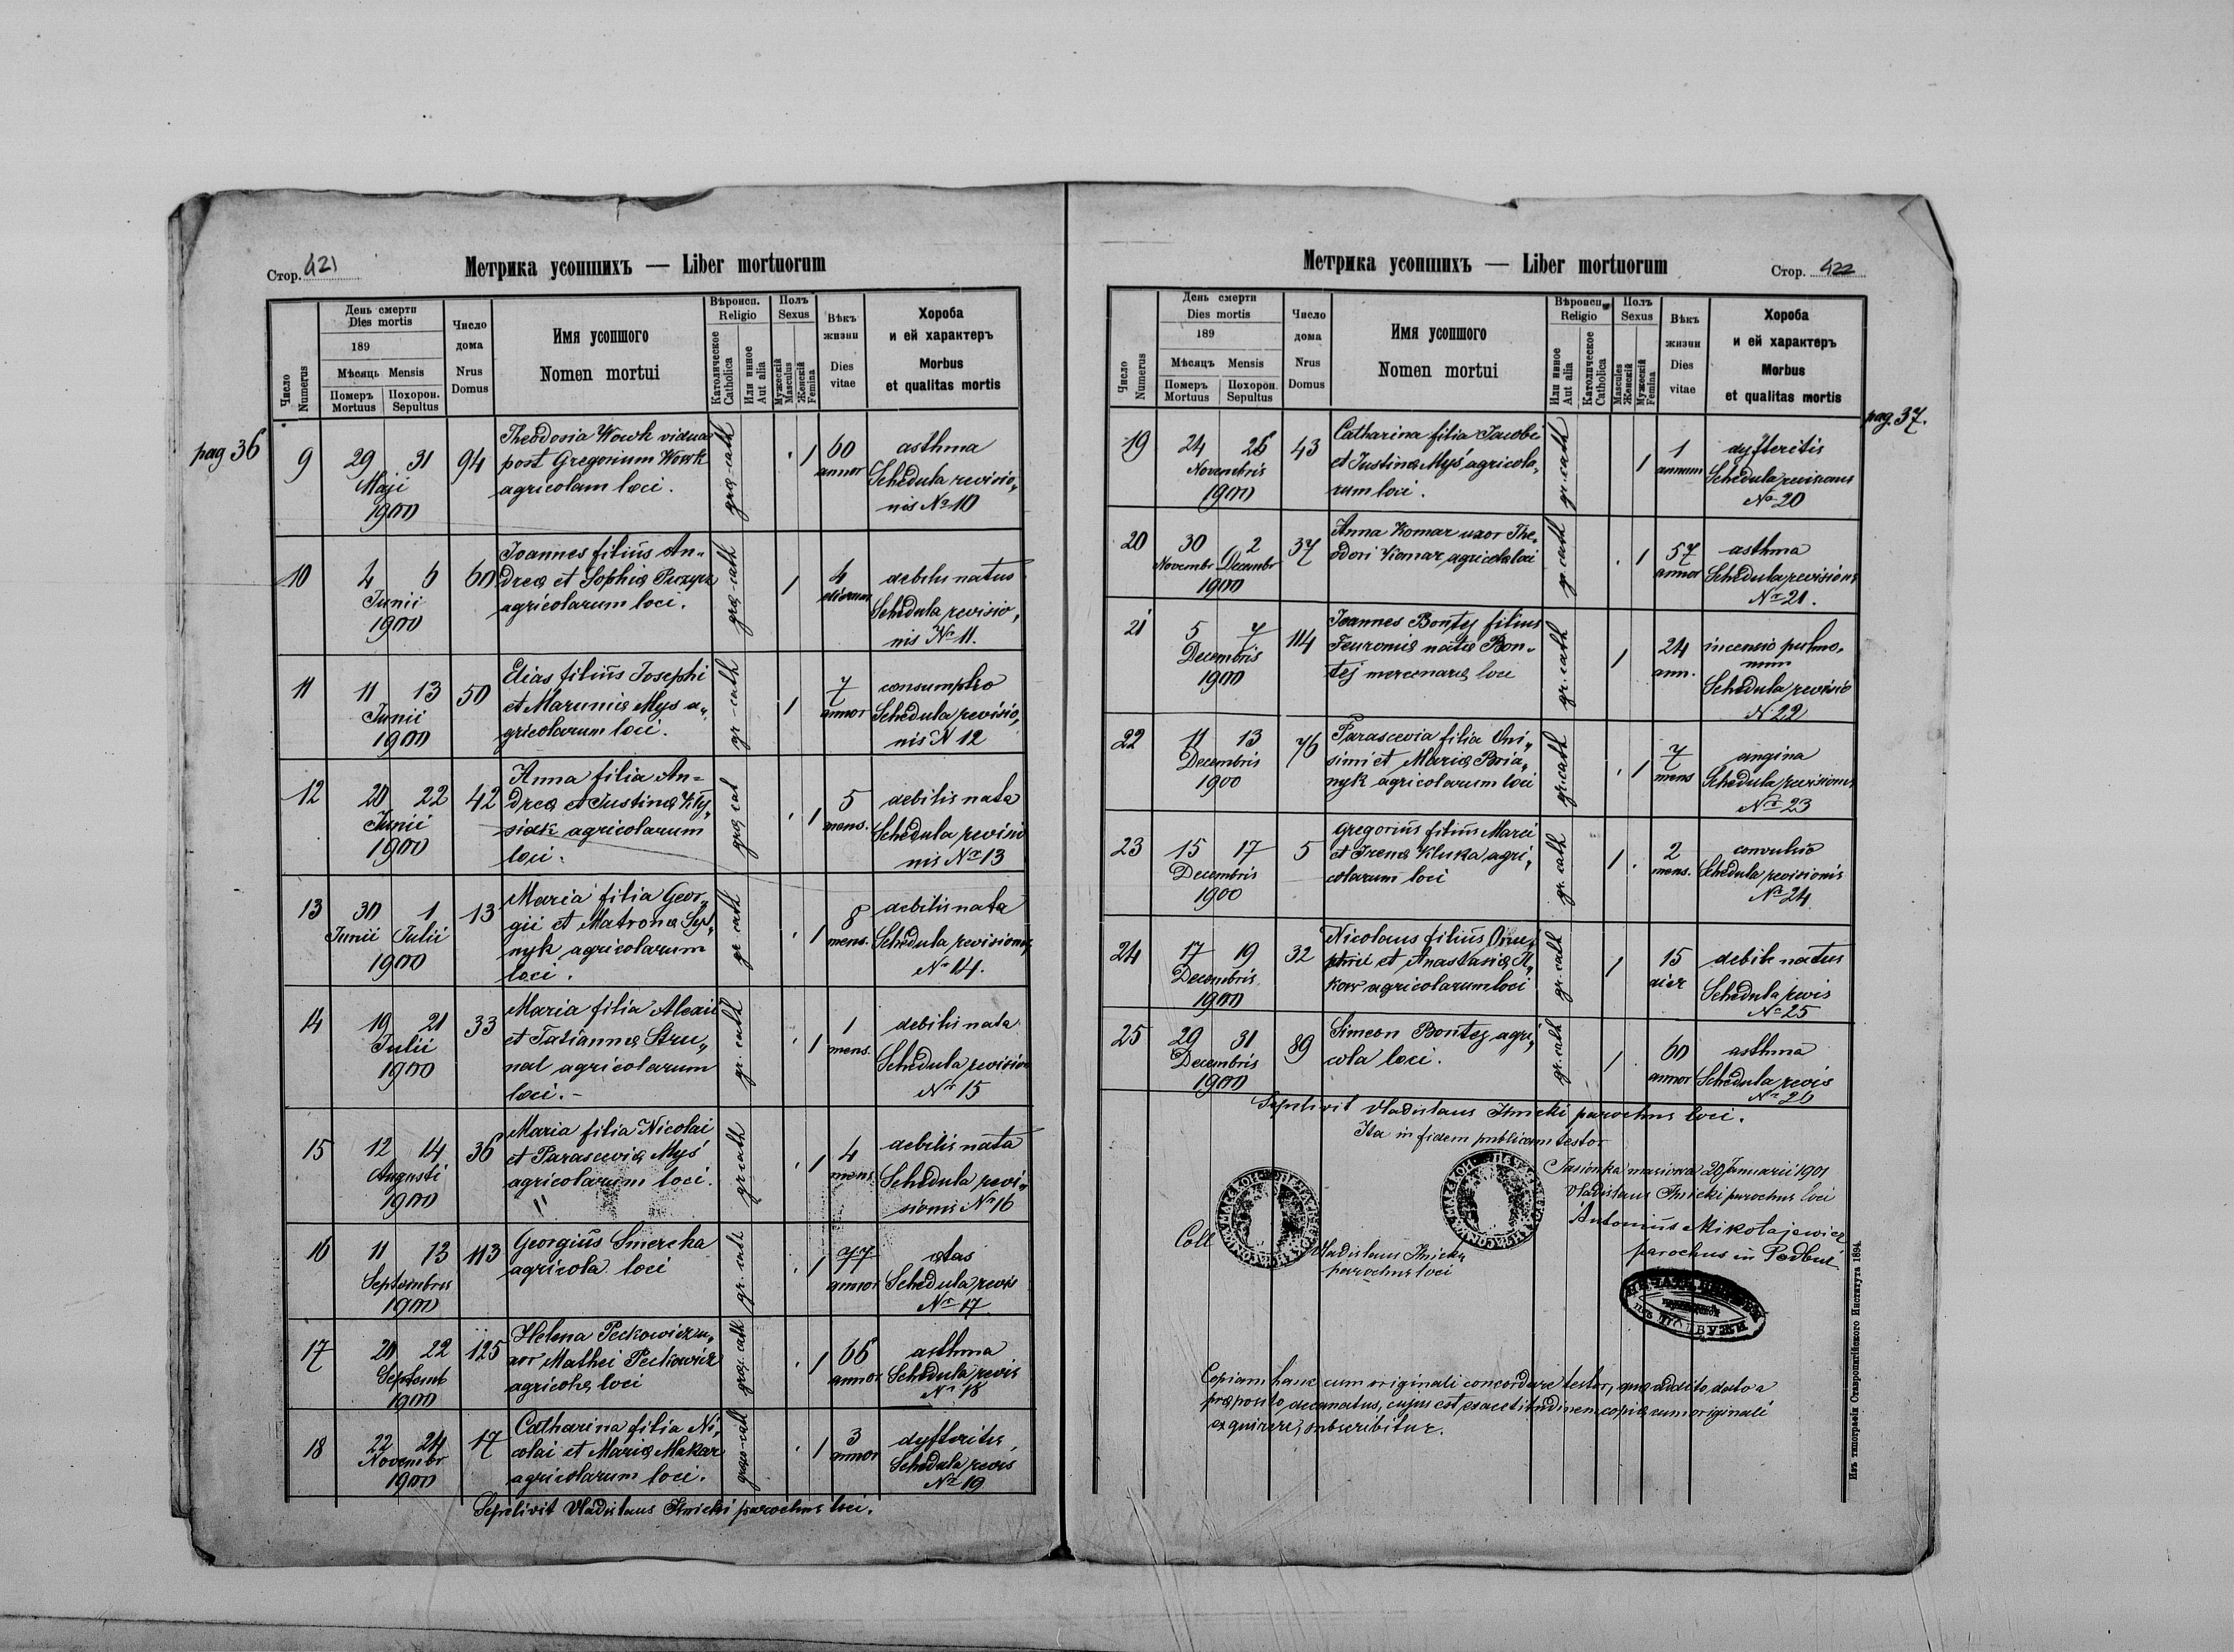 Стор. 421
Метрика усопшихъ — Liber mortuorum
Число
Numerus
День смерти
Dies mortis
189
Мѣсяць Mensis
Померъ
Mortuus
Похорон.
Sepultus
Число
дома
Nrus
Domus
Имя усопшого
Nomen mortui
Вѣроисп.
Religio
Католическое
Catholica
Или инное
Aut alia
Полъ
Sexus
Мужескій
Masculus
Женскій
Femina
Вѣкъ
жизни
Dies
vitae
Хороба
и ей характеръ
Morbus
et qualitas mortis
pag 36
9
29 31
Maji
1900
94
Theodosia Wowk vidua
post Gregorium Wowk
agricolam loci.
græ-cath
1
60
annor
asthma
Schedula revisio„
nis № 10
10
4 6
Junii
1900
60
Joannes filius An-
dreæ et Sophiæ
agricolarum loci.
græ-cath
1
4
dierum
debilis natus
Schedula revisio„
nis № 11.
11
11 13
Junii
1900
50
Elias filius Josephi
et Marunie Mys a„
gricolarum loci.
gr-cath
1
7
annor
consumptio
Schedula revisio„
nis N 12
12
20 22
Junii
1900
42
Anna filia An-
dreæ et Justinæ Kły„
siak agricolarum
loci.
græ cat
1
5
mens.
debilis nata
Schedula revisio
nis № 13
13
30 1
Junii Julii
1900
13
Maria filia Geor„
gii et Matronæ
nyk agricolarum
loci.
gr cath
1
8
mens.
debilis nata
Schedula revisionis
№ 14.
14
19 21
Julii
1900
33
Maria filia Alexii
et Tatiannæ Stru„
nal agricolarum
loci.-
gr. cath
1
1
mens.
debilis nata
Schedula revision
№ 15
15
12 14
Augusti
1900
36
Maria filia Nicolai
et Parasceviæ Myś
agricolarum loci.
gr cath
1
4
mens
debilis nata
Schedula revi„
sionis № 16
16
11 13
Septembris
1900
113
Georgius Smerecka
agricola loci
gr. cath
1
77
annor
ætas
Schedula revis
№ 17
17
20 22
Septemb
1900
125
Helena Peckowicz u„
xor Mathei Peckowicz
agricolæ loci
græ. cath
1
66
annor.
asthma
Schedula revis
№ 18
18
22 24
Novembr
1900
17
Catharina filia Ni„
colai et Mariæ Makar
agricolarum loci.
græco-cath
1
3
annor
dyfteritis
Schedula revis
№ 19
Sepelivit Vladislaus Ilnicki parochus loci.
Метрика усопшихъ — Liber mortuorum
Стор. 422
Число
Numerus
День смерти
Dies mortis
189
Мѣсяцъ Mensis
Померъ
Mortuus
Похорон.
Sepultus
Число
дома
Nrus
Domus
Имя усопшого
Nomen mortui
Вѣроисп.
Religio
Или инное
Aut alia
Католическое
Catholica
Полъ
Sexus
Mascules
Женскій
Мужескій
Femina
Вѣкъ
жизни
Dies
vitae
Хороба
и ей характеръ
Morbus
et qualitas mortis
pag. 37.
19
24 26
Novembris
1900
43
Catharina filia Jacobi
et Justinæ Myś agricola„
rum loci.
gr. cath
1
1
annum
dyfteritis
Schedula revisionis
№ 20
20
30 2
Novembr Decembr
1900
37
Anna Komar uxor The„
odori Komar agricolæ loci
gr. cath
1
57
annor
asthma
Schedula revisionis
№ 21.
21
5 7
Decembris
1900
114
Joannes Bontej filius
Feuroniæ natæ Bon-
tej mercenariæ loci
gr. cath
1
24
ann.
incensio pulmo„
num
Schedula revisio
N. 22
22
11 13
Decembris
1900
76
Parascevia filia Oni„
simi et Mariæ Bria„
nyk agricolarum loci
gr. cath
1
7
mens
angina
Schedula revisionis
№ 23
23
15 17
Decembris
1900
5
Gregorius filius Marci
et Irenæ Kluka agri„
colarum loci
gr. cath
1
2
mens.
convulsio
Schedula revisionis
№ 24
24
17 19
Decembris
1900
32
Nicolaus filius Onu„
phrii et Anastasiæ
kow agricolarum loci
gr. cath
1
15
dier
debilis natus
Schedula revis
№ 25
25
29 31
Decembris
1900
89
Simeon Bontej agri„
cola loci.
gr. cath
1
60
annor
asthma
Schedula revis
№ 26
Sepelivit Vladislaus Ilnicki parochus loci.
Ita in fidem publicam testor
Jasionka masiowa 20 Januarii 1901
Vladislaus Ilnicki parochus loci
Antonius Mikołajewicz
parochus in Podbuż
Coll
Vladislaus Ilnicki
parochus loci
Copiam hanc cum originali concordare testor, quæ addito dato a
præposito decanatus, cujus est exactitudinem copiæ cum originali
exquirere, subscribitur.
Изъ типографіи Ставропигійского Института 1894.